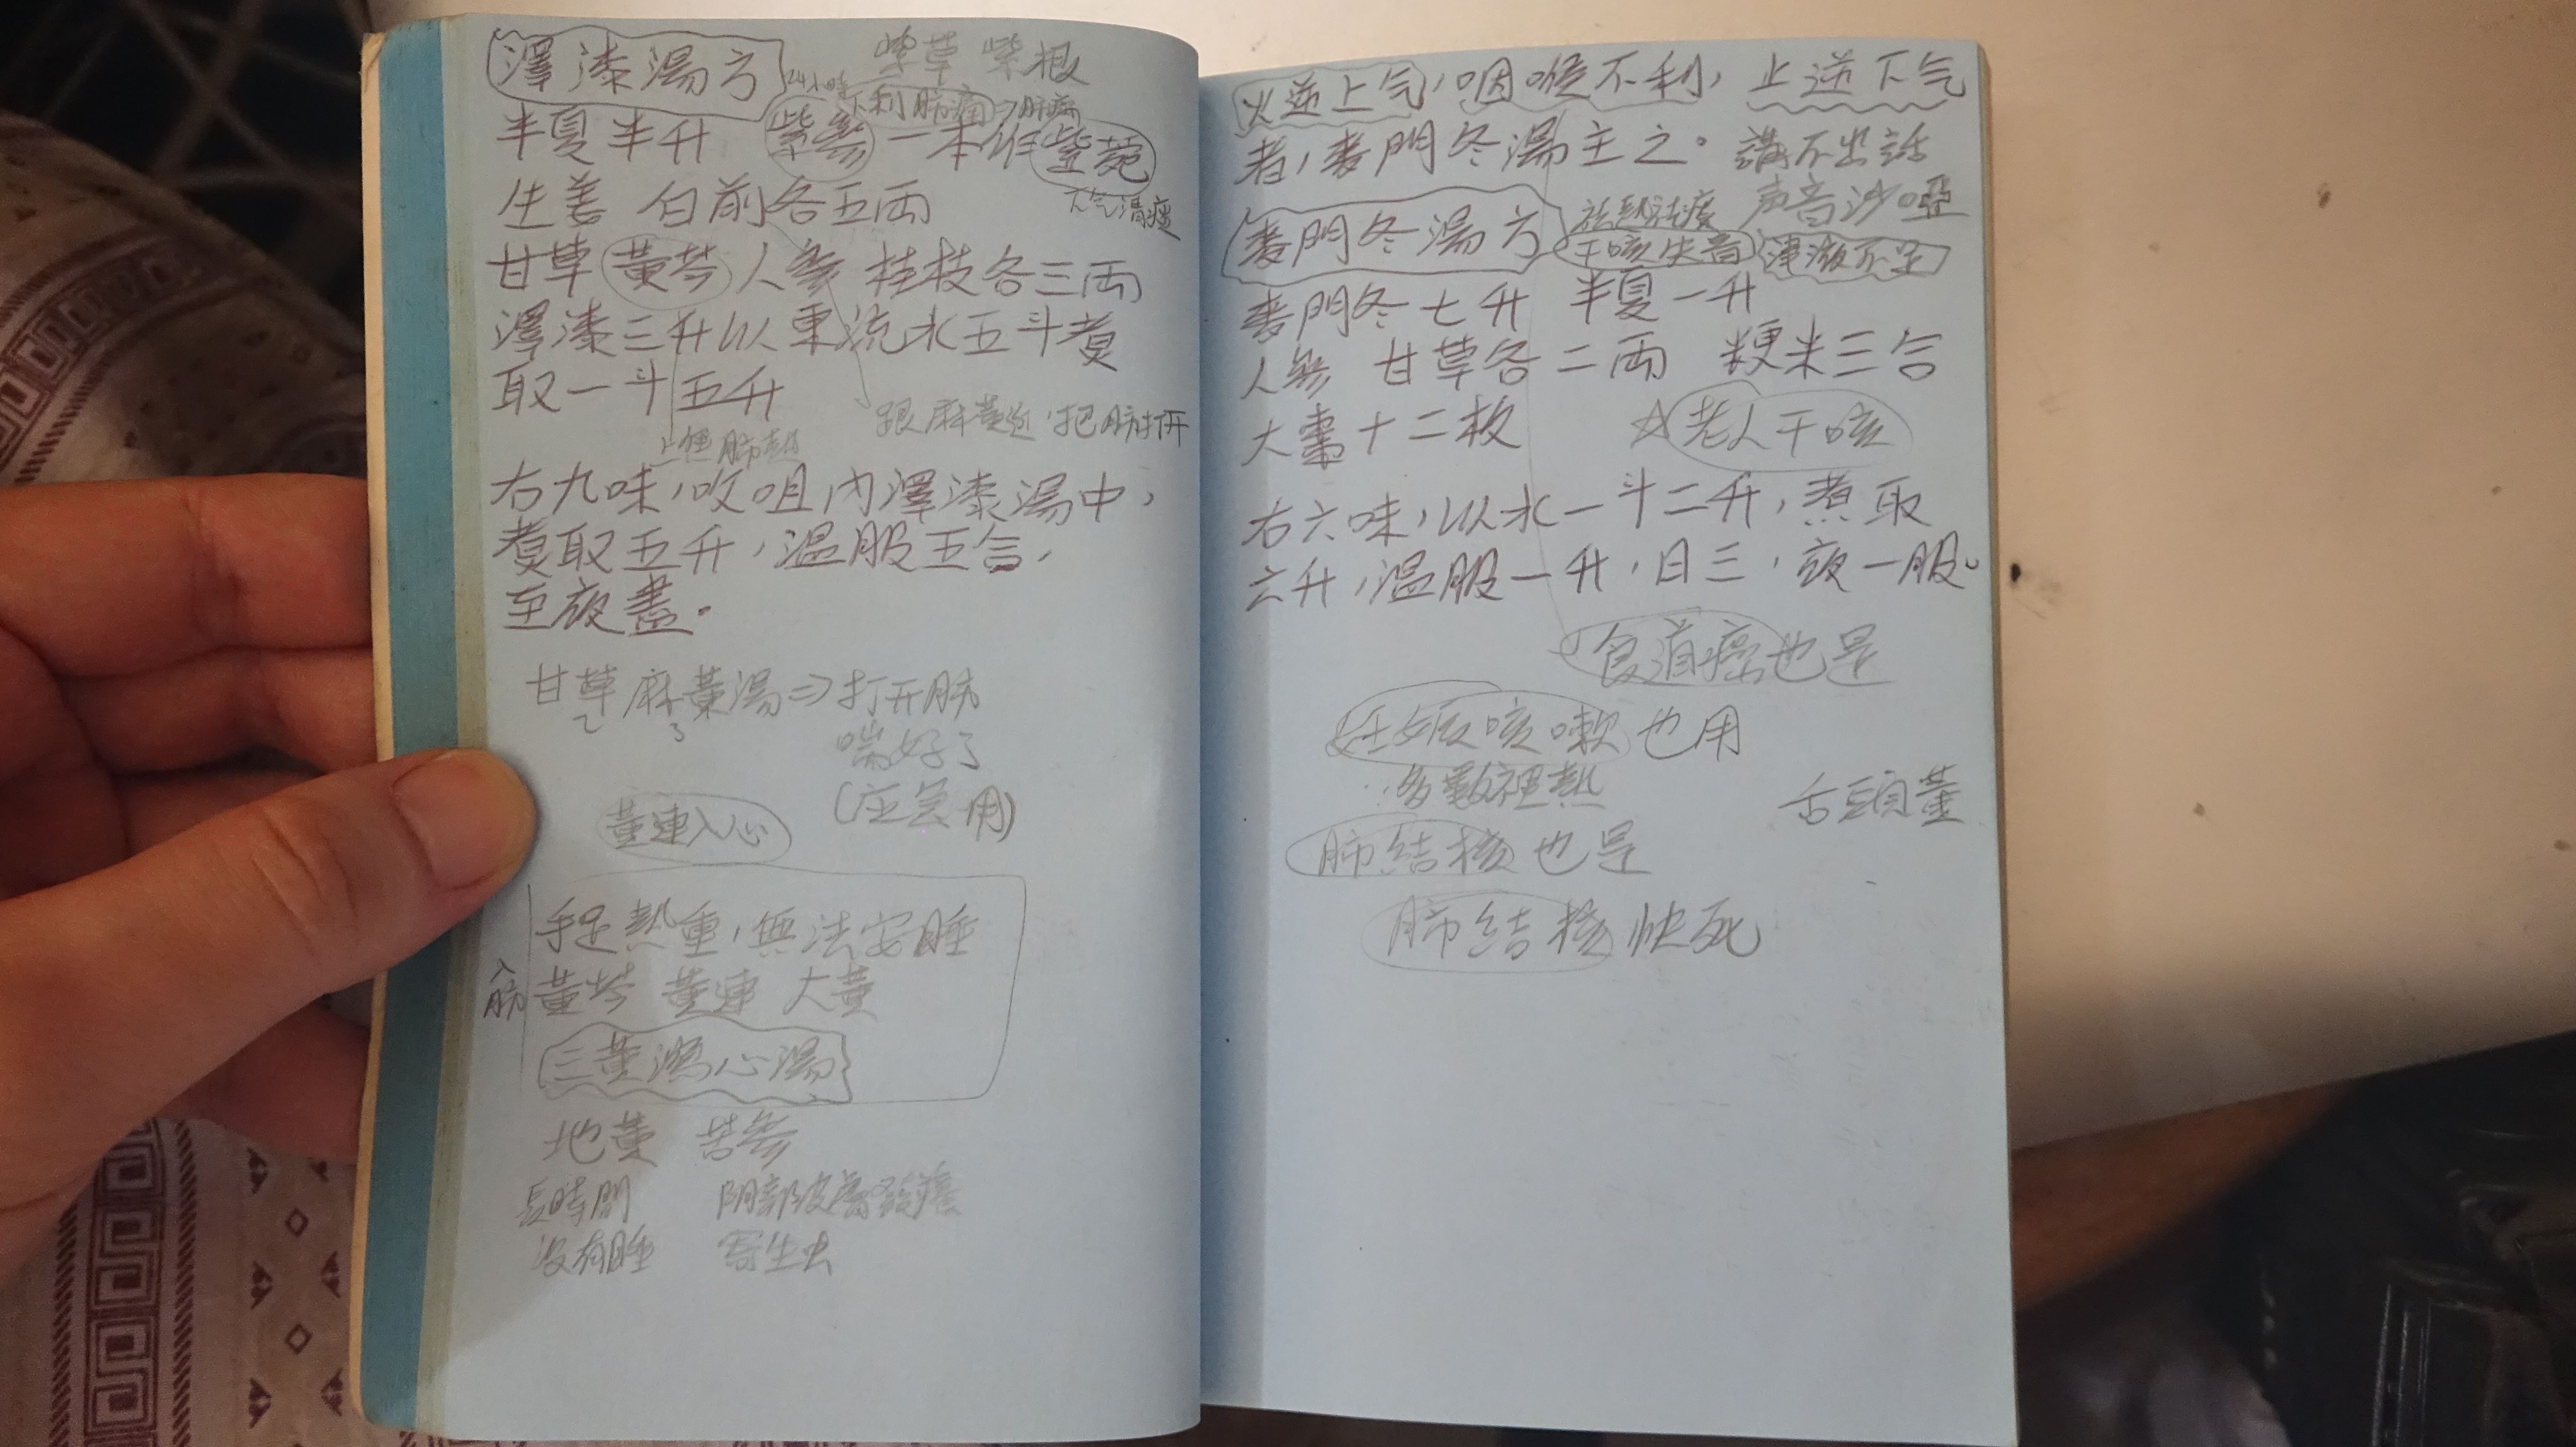 澤漆湯方
紫草 紫根
24小時
下利肺痛⇒肺癌
半夏半升 紫參 一本作紫菀
生姜 白前各五両
下气清痰
甘草 黃芩 人參 桂枝各三両
澤漆三升以東流水五斗煮
取一斗五升
跟麻黃近,把肺打开
去裡肺熱
右九味,㕮咀內澤漆湯中,
煮取五升,温服五合,
至夜盡。
甘草麻黃湯⇒打开肺
2 3
喘好了
(应急用)
黃連入心
手足熱重,無法安睡
入肺
黃芩 黃連 大黃
三黃瀉心湯
地黃 苦參
長時間 阴部皮膚發癢
沒有睡 寄生虫
火逆上气,咽喉不利,止逆下气
者,麦門冬湯主之。講不出話
声音沙啞
麦門冬湯方 干咳失音 津液不足
麦門冬七升 半夏一升
人參 甘草各二両 粳米三合
大棗十二枚 ☆老人干咳
右六味,以水一斗二升,煮取
六升,温服一升,日三,夜一服。
食道癌也是
妊娠咳嗽也用
多數裡熱
舌頭黃
肺結核也是
肺結核快死